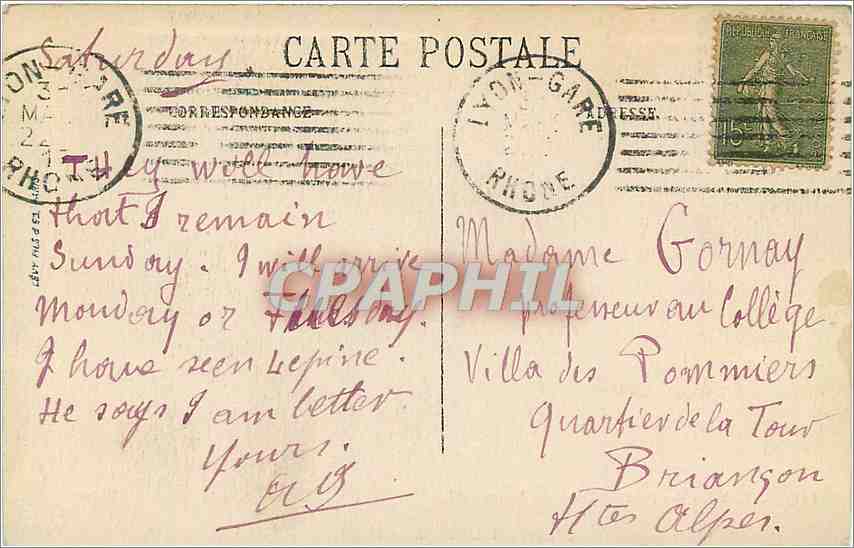 Saturday
CARTE POSTALE
CORRESPONDANCE
ADRESSE
RÉPUBLIQUE FRANÇAISE
15c
LYON-GARE
RHONE
LYON-GARE
3
22
RHONE
They will have
that I remain
Sunday. I will arrive
Monday or
I have seen Lepine.
He says I am better
Yours.
CPAPHIL
Madame Gornay
professeur au Collège
Villa des Pommiers
Quartier de la Tour
Briançon
Htes Alpes.